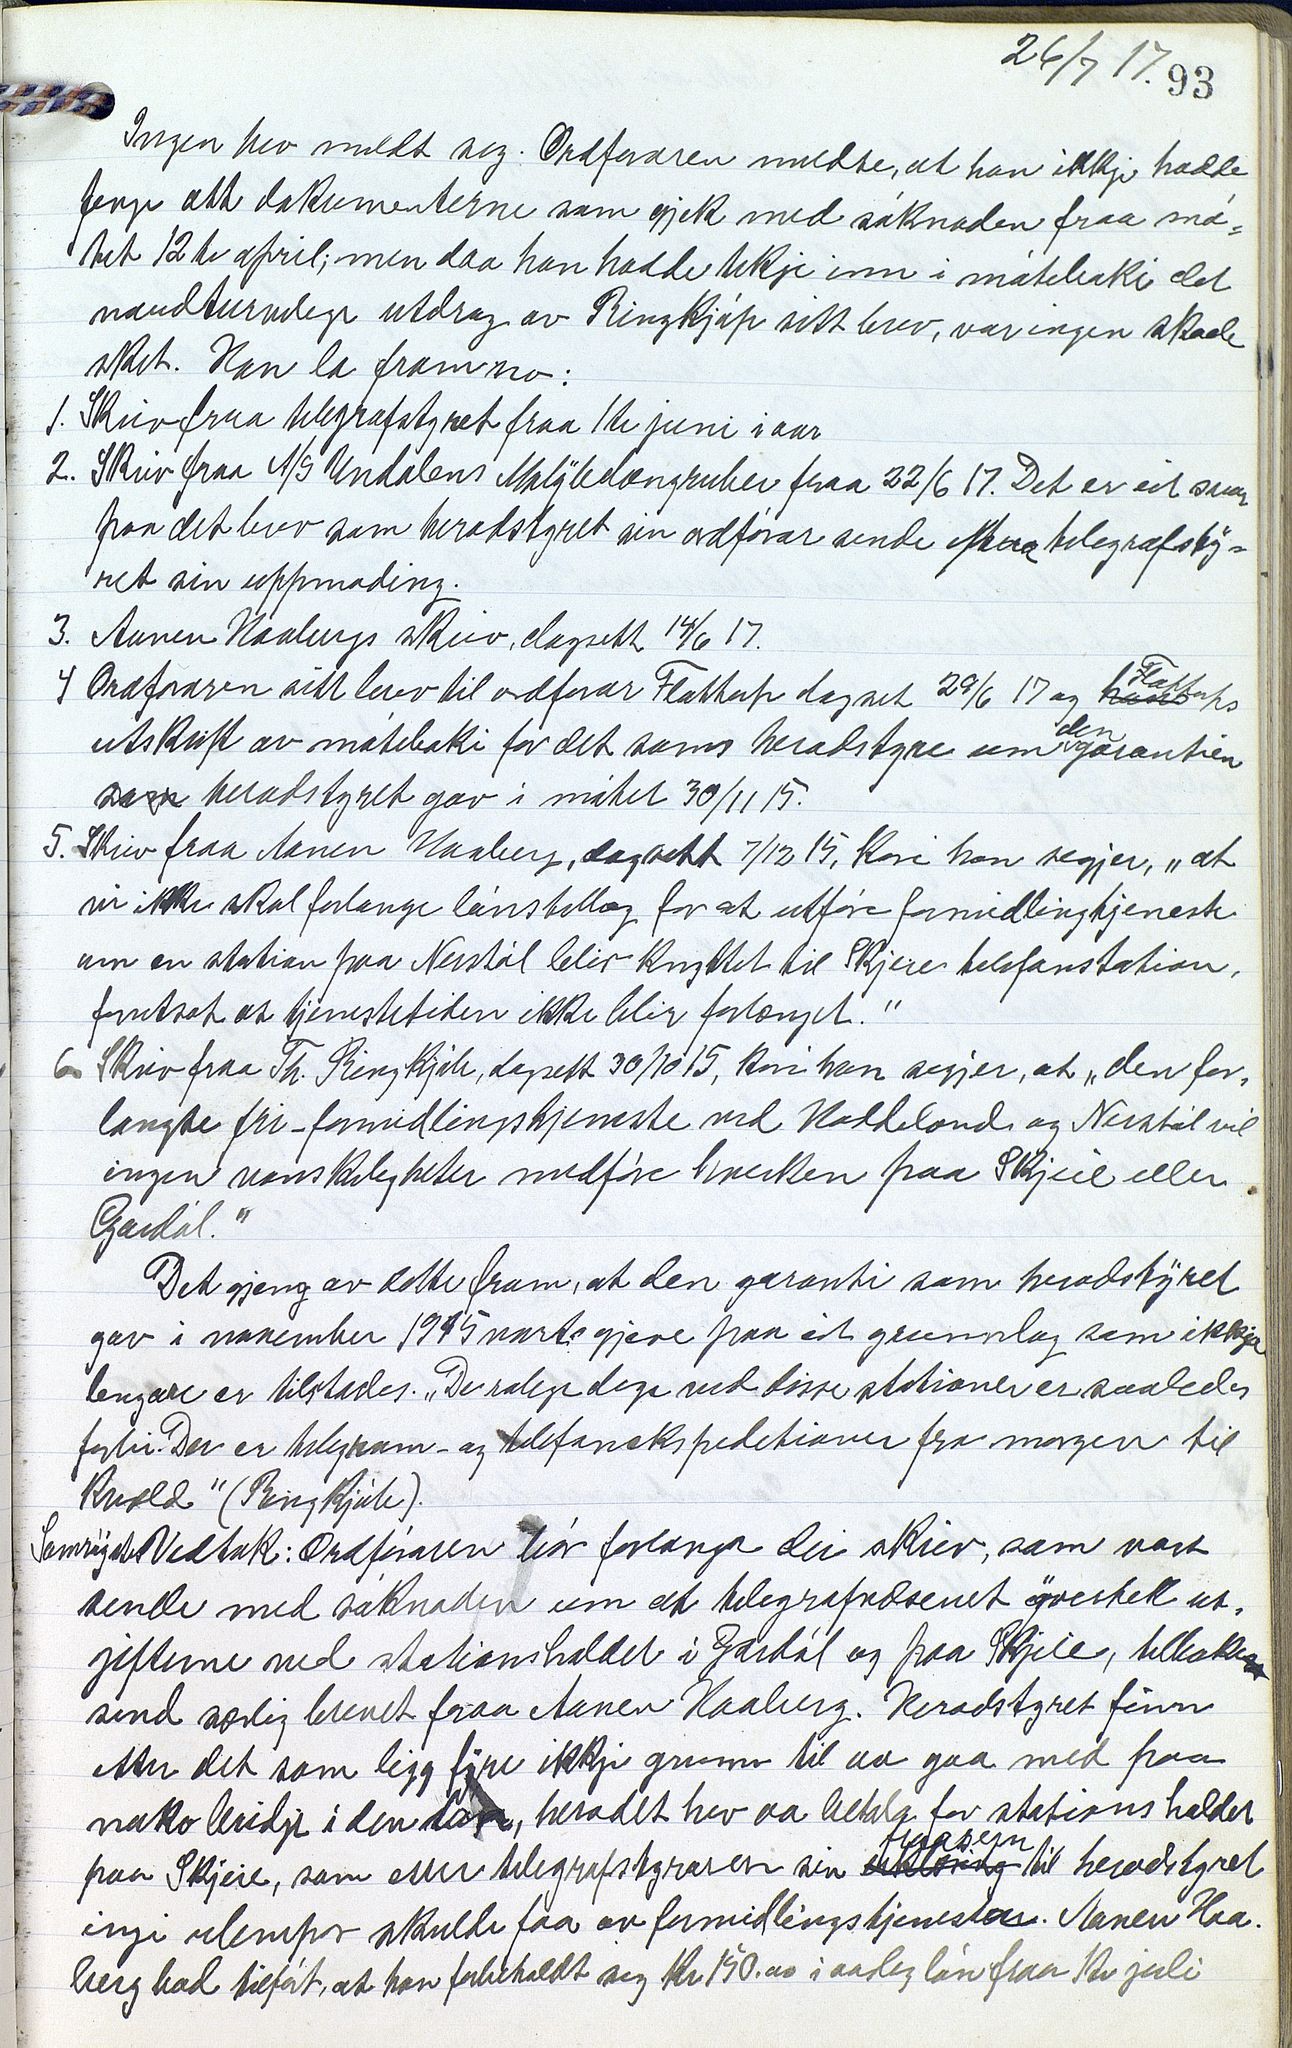 26/7 17. 93
Ingen hev meldt seg. Ordføraren meldte, at han ikkje hadde
fenge att dokumenterne som gjek med søknaden fraa mø-
tet 12te april; men daa han hadde tekje inn i møteboki det
naudturvelege utdrag av Ringkjøb sitt brev, var ingen skade
sket. Han la fram no:
1. Skriv fraa telegrafstyret fraa 1te juni i aar
2. Skriv fraa A/S Undalens Molybdængruber fraa 22/6 17. Det er eit svar
paa det brev som heradstyret sin ordførar sende etter telegrafsty-
ret sin uppmoding.
3. Aanen Haabergs skriv, dagsett 14/6 17.
4 Ordføraren sitt brev til ordførar Flottorp dagset 29/6 17 og Flottorps
utskrift av møteboki for det sams heradstyre um den garantien
som heradstyret gav i møtet 30/11 15.
5. Skriv fraa Aanen Haaberg, dagsett 7/12 15, kori han segjer, „at
vi ikke skal forlange lønstillæg for at utføre formidlingstjeneste
om en station paa Nerstøl blir knyttet til Skjeie telefonstation,
forutsat at tjenestetiden ikke blir forlænget."
6. Skriv fraa Th. Ringkjøb, dagsett 30/10 15, kori han segjer, at „den for-
langte fri-formidlingstjeneste ved Haddeland og Nerstøl vil
ingen vanskeligheter medføre hverken paa Skjeie eller
Gardøl."
Det gjeng av dette fram, at den garanti som heradstyret
gav i november 1915 vart gjeve paa eit grunnlag som ikkje
lengare er tilstades. „De rolige dage ved disse stationer er saaledes
forbi. Der er telegram- og telefonekspeditioner fra morgen til
kvæld" (Ringkjøb).
Samrøystes Vedtak: Ordføraren bør forlanga dei skriv, som vart
sende med søknaden um at telegrafvæsenet overtek ut-
gifterne ved stationshaldet i Gardøl og paa Skjeie, tilbake
send særlig brevet fraa Aanen Haaberg. Heradstyret finn
etter det som ligg fyre ikkje grunn til aa gaa med paa
noko bridge i den , heradet hev aa betala for stationshaldet
paa Skjeie, som etter telegrafstyraren sin til heradstyret
ingi ulempor skulde faa av formidlingstjenesten. Aanen Haa-
berg had tilført, at han forbeholdt seg kr 150.00 i aarleg løn fraa 1te juli